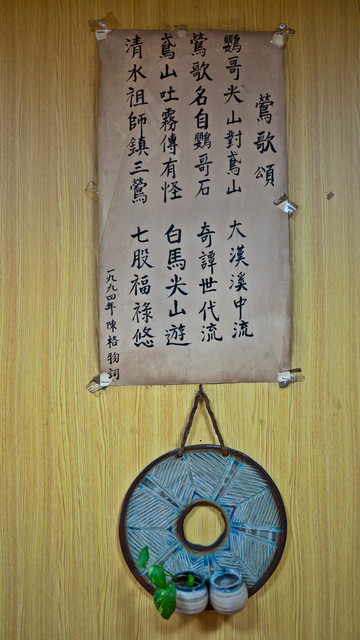 鶯歌頌
鸚哥尖山對鳶山 大漢溪中流
鶯歌名自鸚哥石 奇譚世代流
鳶山吐霧傳有怪 白馬尖山遊
清水祖師鎮三鶯 七股福祿悠
一九九四年 陳格物詞